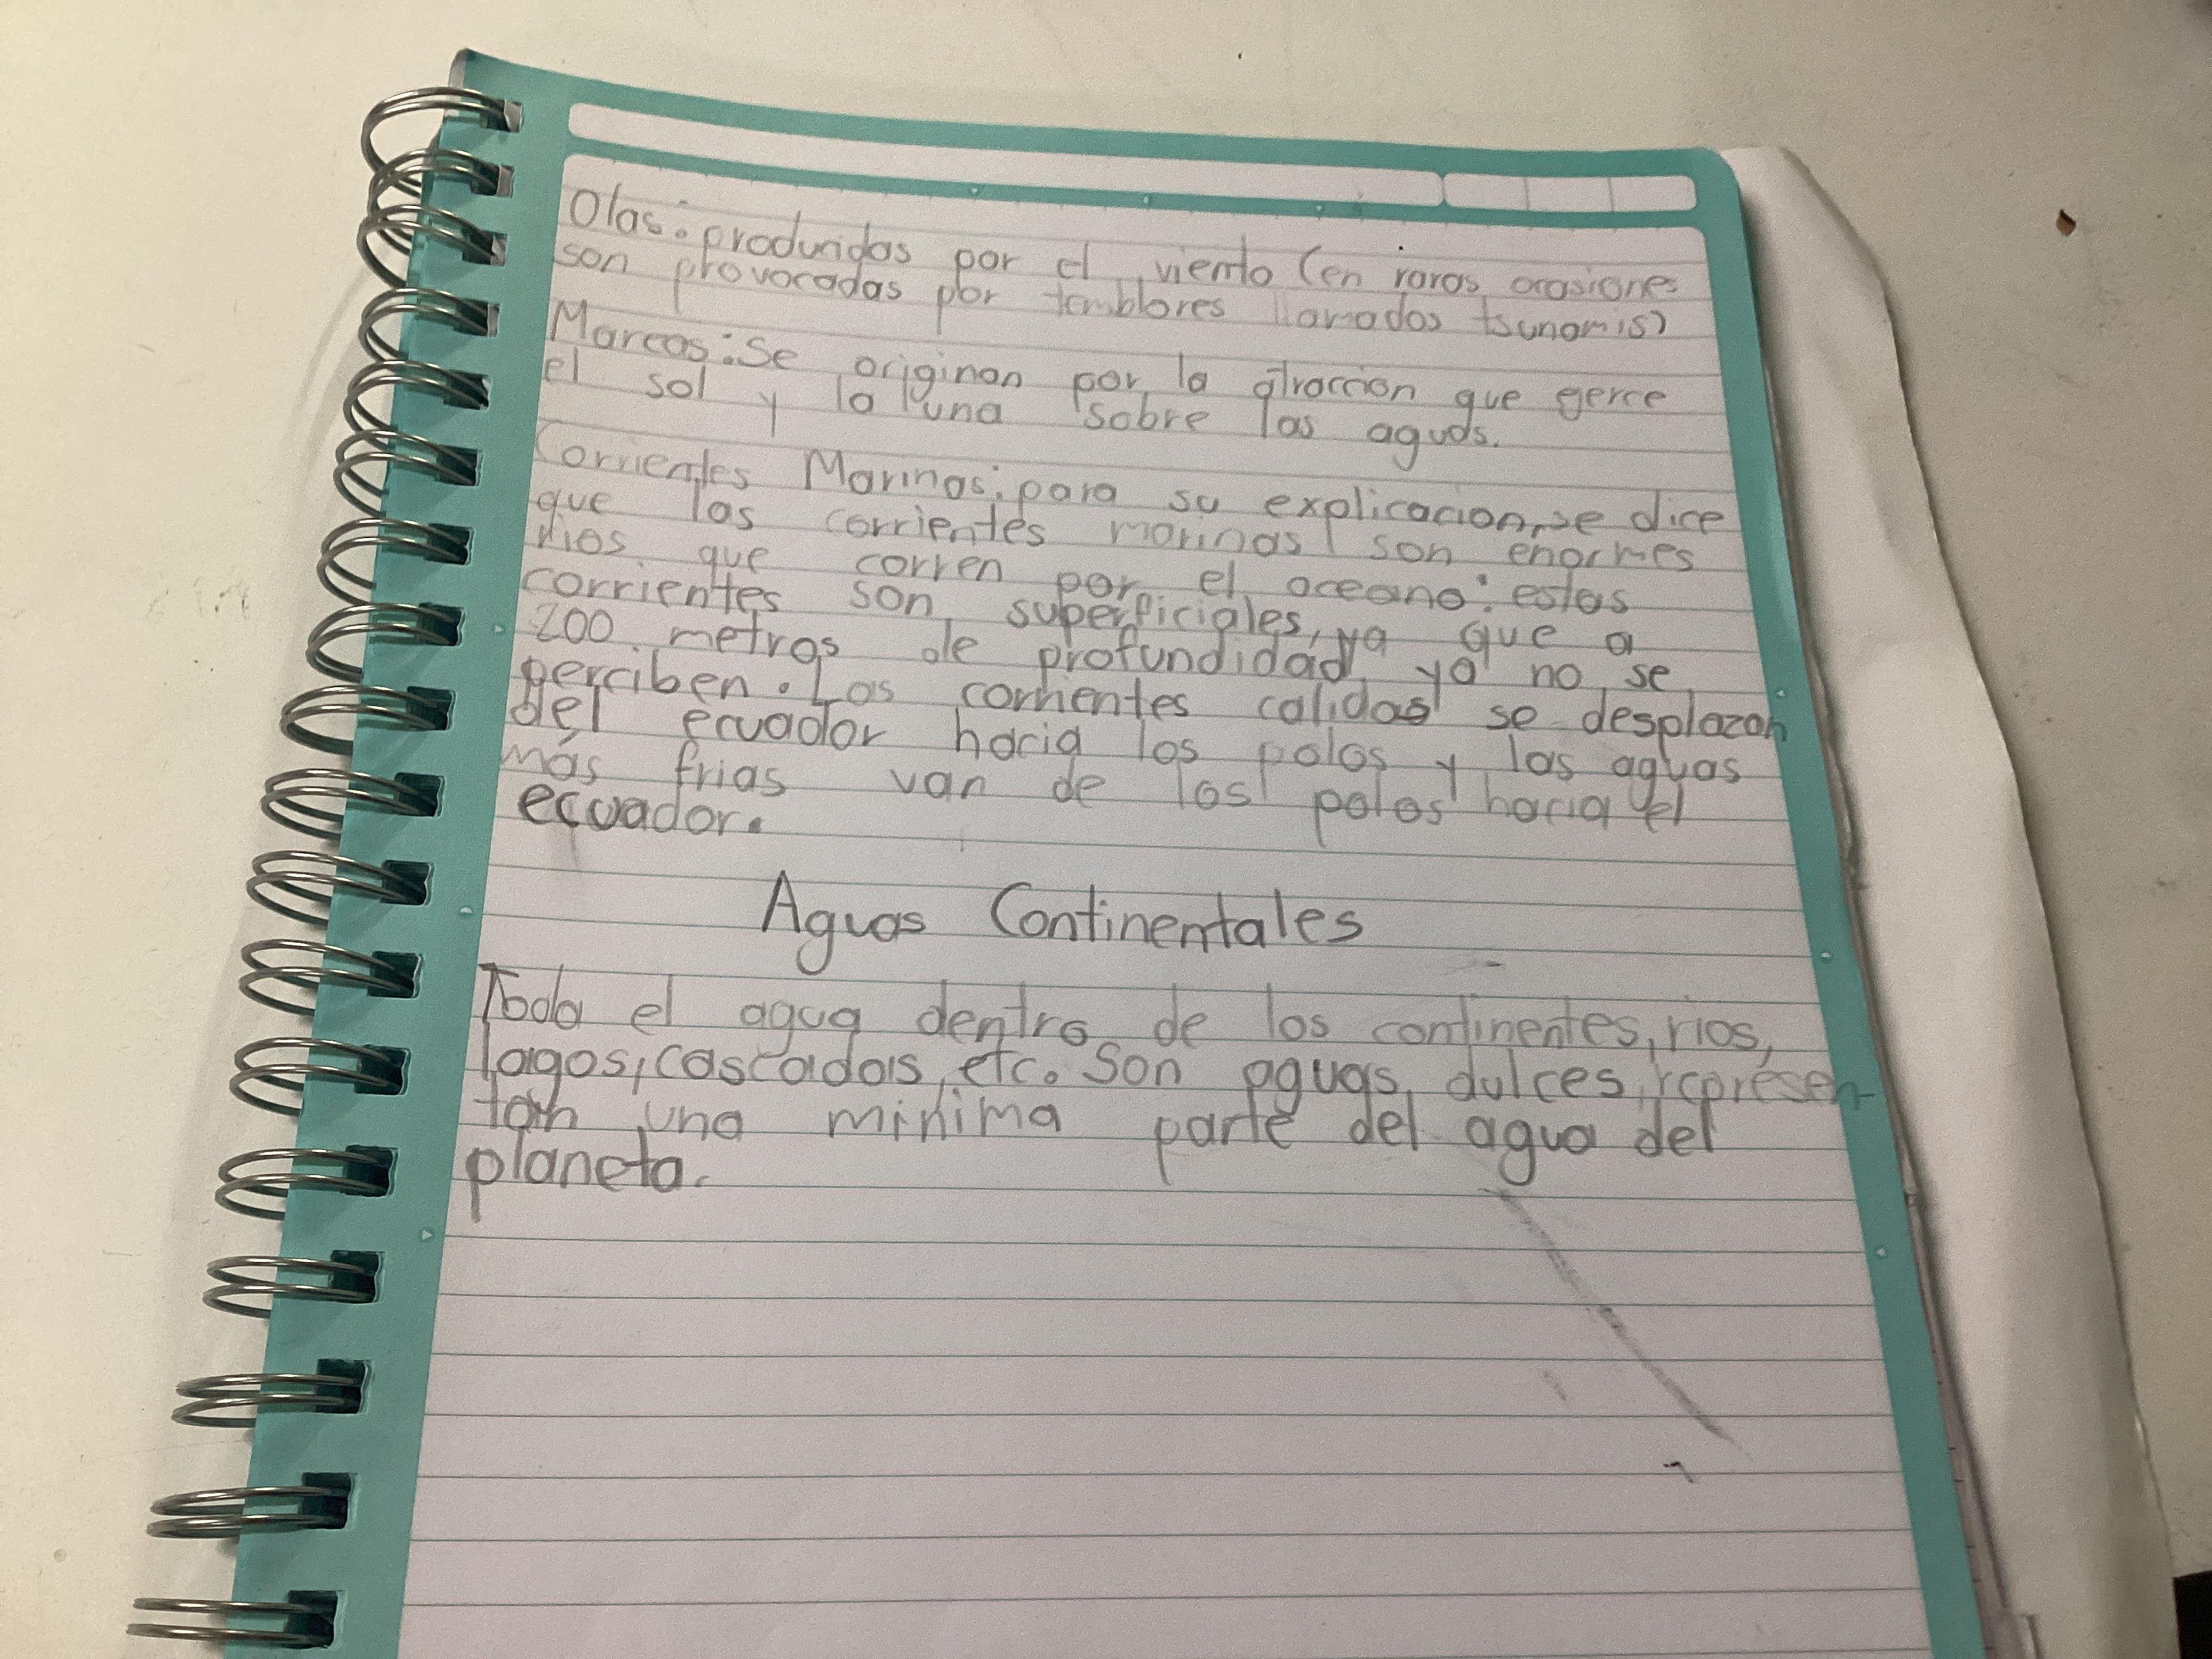 Olas: producidas por el viento (en raras ocasiones
son provocadas por temblores llamados tsunamis)
Mareas: Se originan por la atraccion que ejerce
el sol y la luna sobre las aguas.
Corrientes Marinas: para su explicacion, se dice
que las corrientes marinas son enormes
rios que corren por el oceano: estas
corrientes son superficiales, ya que a
200 metros de profundidad ya no se
perciben. Las corrientes calidas se desplazan
del ecuador hacia los polos y las aguas
más frias van de los polos hacia el
ecuador.
Aguas Continentales
Toda el agua dentro de los continentes, rios,
lagos, cascadas, etc. Son aguas dulces, represen-
tan una minima parte del agua del
planeta.